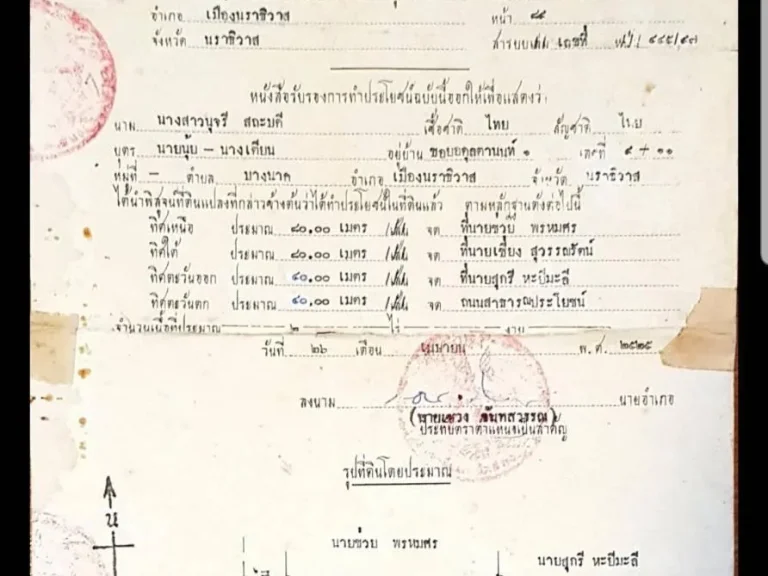 อำเภอ เมืองนราธิวาส หน้า ๘๕
จังหวัด นราธิวาส สารบบ เลขที่ ๔๔๕/๔๗
หนังสือรับรองการทำประโยชน์ฉบับนี้ออกให้เพื่อแสดงว่า
นาม นางสาวบุจรี สถะบดี เชื้อชาติ ไทย สัญชาติ ไทย
บุตร นายนุ้ย - นางเคียน อยู่บ้าน เลขที่ ๕ + ๑๑
หมู่ที่ - ตำบล บางนาค อำเภอ เมืองนราธิวาส จังหวัด นราธิวาส
ได้นำพิสูจน์ที่ดินแปลงที่กล่าวข้างต้นว่าได้ทำประโยชน์ในที่ดินแล้ว ตามหลักฐานดังต่อไปนี้
ทิศเหนือ ประมาณ ๘๐.๐๐ เมตร จด ที่นายช่วย พรหมศร
ทิศใต้ ประมาณ ๘๐.๐๐ เมตร จด ที่นายเซี่ยง สุวรรณรัตน์
ทิศตะวันออก ประมาณ ๔๐.๐๐ เมตร จด ที่นายสุกรี หะปีมะลี
ทิศตะวันตก ประมาณ ๔๐.๐๐ เมตร จด ถนนสาธารณประโยชน์
จำนวนเนื้อที่ประมาณ ๒ ไร่ งาน
วันที่ ๒๖ เดือน เมษายน พ.ศ. ๒๕๒๕
ลงนาม นายอำเภอ
จันทสุวรรณ)
ประทับตราตำแหน่งเป็นสำคัญ
รูปที่ดินโดยประมาณ
น
นายช่วย พรหมศร
นายสุกรี หะปีมะลี